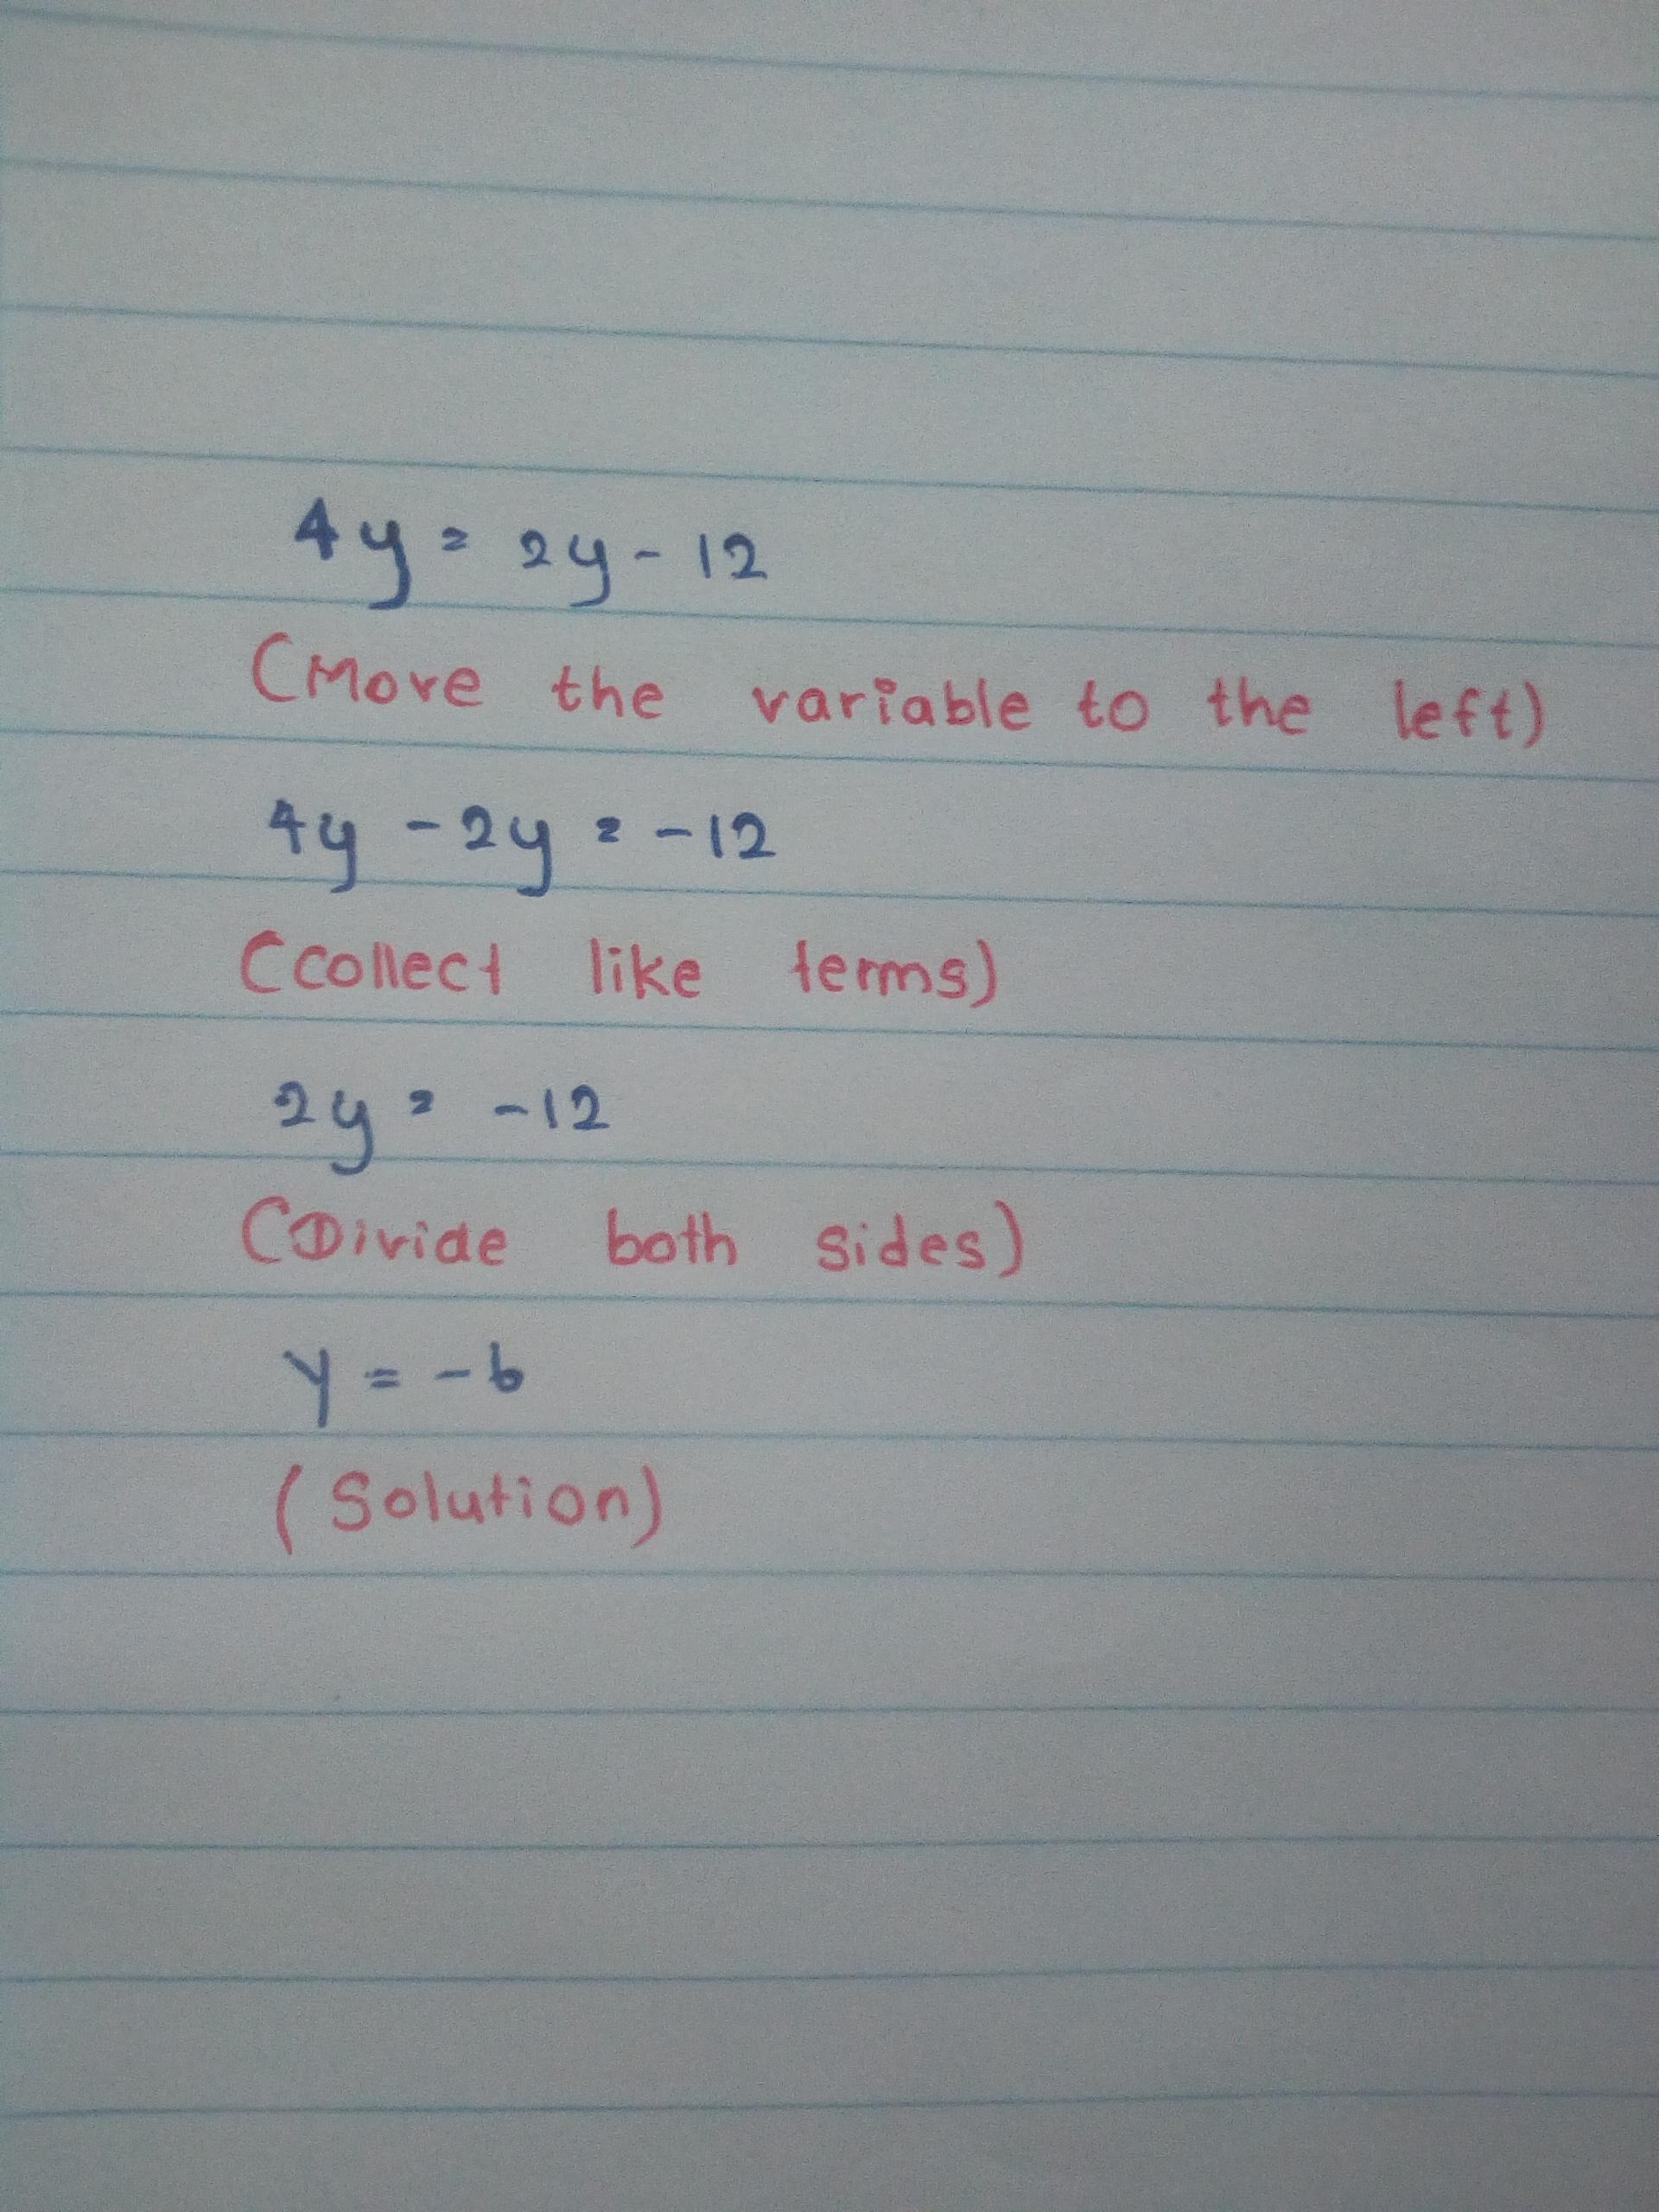 4y = 2y - 12
(Move the variable to the left)
4y - 2y = -12
(collect like terms)
2y = -12
(Divide both sides)
y = -6
(Solution)